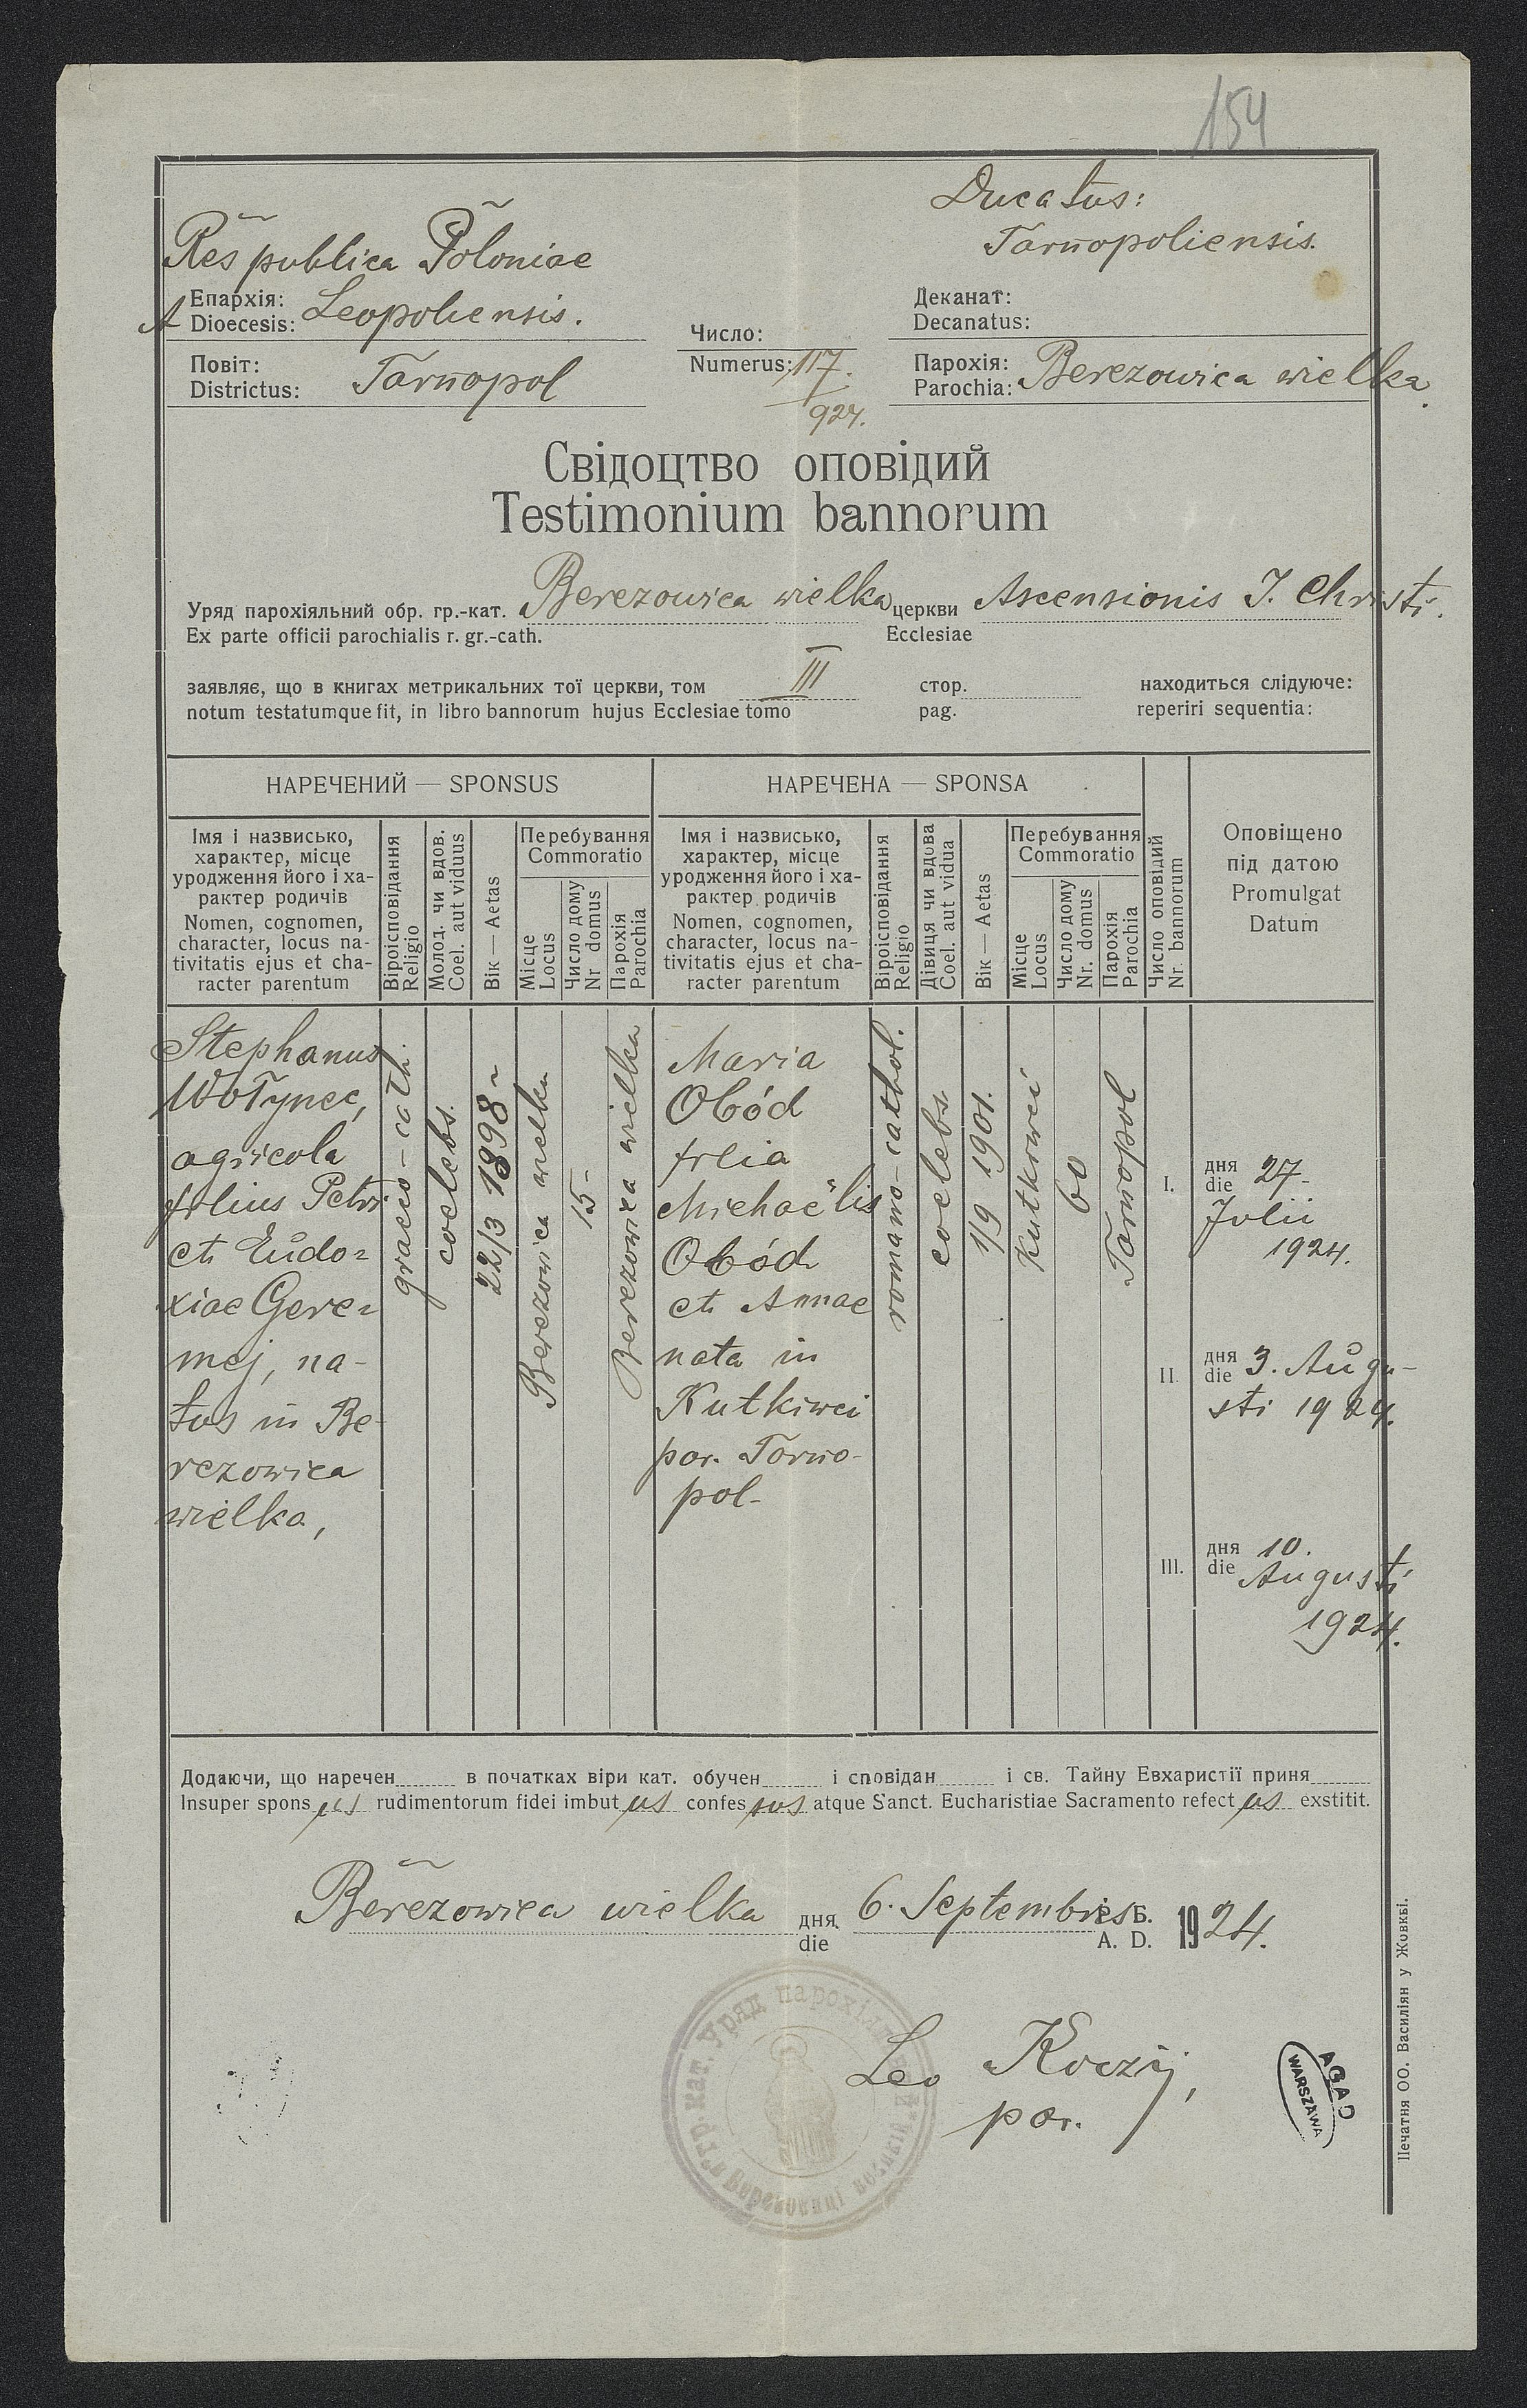 154
Ducatus:
Tarnopoliensis.
Res publica Poloniae
A Епархія:
Dioecesis: Leopoliensis.
Деканат:
Decanatus:
Число:
Numerus: 117.
924.
Повіт:
Districtus: Tarnopol
Парохія:
Parochia: Berezowica wielka.
Свідоцтво оповідий
Testimonium bannorum
Уряд парохіяльний обр. гр.-кат. Berezowica wielka церкви Ascensionis J. Christi.
Ex parte officii parochialis r. gr.-cath. Ecclesiae
заявляє, що в книгах метрикальних тої церкви, том III стор. находиться слідуюче:
notum testatumque fit, in libro bannorum hujus Ecclesiae tomo pag. reperiri sequentia:
НАРЕЧЕНИЙ — SPONSUS
НАРЕЧЕНА — SPONSA
Імя і назвисько,
характер, місце
уродження його і ха-
рактер родичів
Nomen, cognomen,
character, locus na-
tivitatis ejus et cha-
racter parentum
Віроісповідання
Religio
Молод. чи вдов.
Coel. aut viduus
Вік — Aetas
Перебування
Commoratio
Місце
Locus
Число дому
Nr domus
Парохія
Parochia
Імя і назвисько,
характер, місце
уродження його і ха-
рактер родичів
Nomen, cognomen,
character, locus na-
tivitatis ejus et cha-
racter parentum
Віроісповідання
Religio
Дівиця чи вдова
Coel. aut vidua
Вік — Aetas
Перебування
Commoratio
Місце
Locus
Число дому
Nr. domus
Парохія
Parochia
Число оповідий
Nr. bannorum
Оповіщено
під датою
Promulgat
Datum
Stephanus
Wołynec,
agricola
filius Petri
et Eudo=
xiae Gere=
mej, na-
tus in Be-
rezowica
wielka,
graeco-cath.
coelebs.
22/3 1898
Berezowica wielka
15-
Berezowica wielka
Maria
Obód
filia
Michaëlis
Obód
et Annae
nata in
Kutkiwci
par. Tarno-
pol-
romano-cathol.
coelebs.
1/9 1901.
Kutkowci
60
Tarnopol
I. дня
die 27-
Julii
1924.
II. дня
die 3. Augu-
sti 1924.
III. дня
die 10.
Augusti
1924.
Додаючи, що наречен в початках віри кат. обучен і сповідан і св. Тайну Евхаристії приня
Insuper spons us rudimentorum fidei imbut us confes sus atque Sanct. Eucharistiae Sacramento refect us exstitit.
Berezowica wielka дня 6. Septembris Р. Б. 1924.
die A. D.
Leo Koczij,
par.
AGAD
WARSZAWA
Печатня ОО. Василіян у Жовкві.